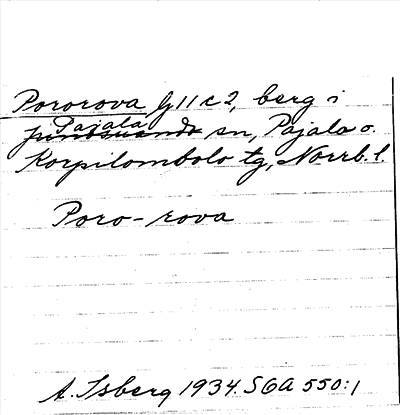 Pororova fj 11 c 2, berg i
Pajala
Junosuando sn, Pajala o.
Korpilombolo tg, Norrb. l.
Poro-rova
A. Isberg 1934. SGA 550:1